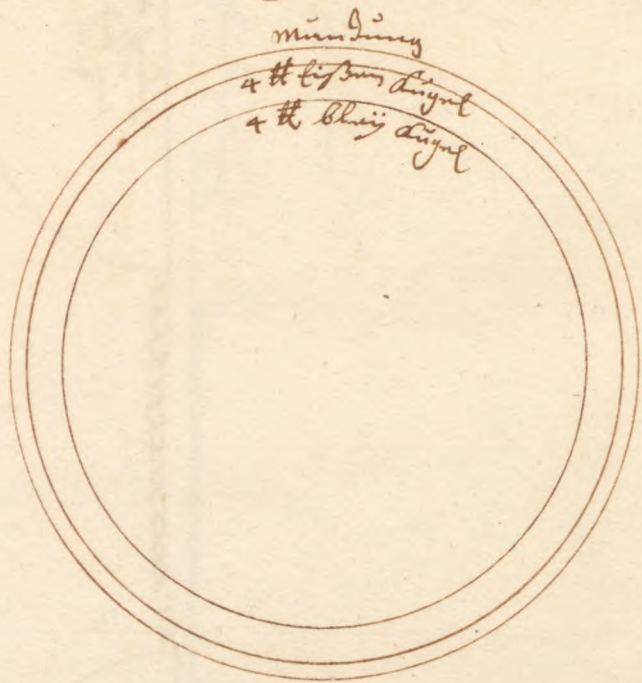 Mundung
4 ℔ Eißen Kugel
4 ℔ bleÿ Kugel